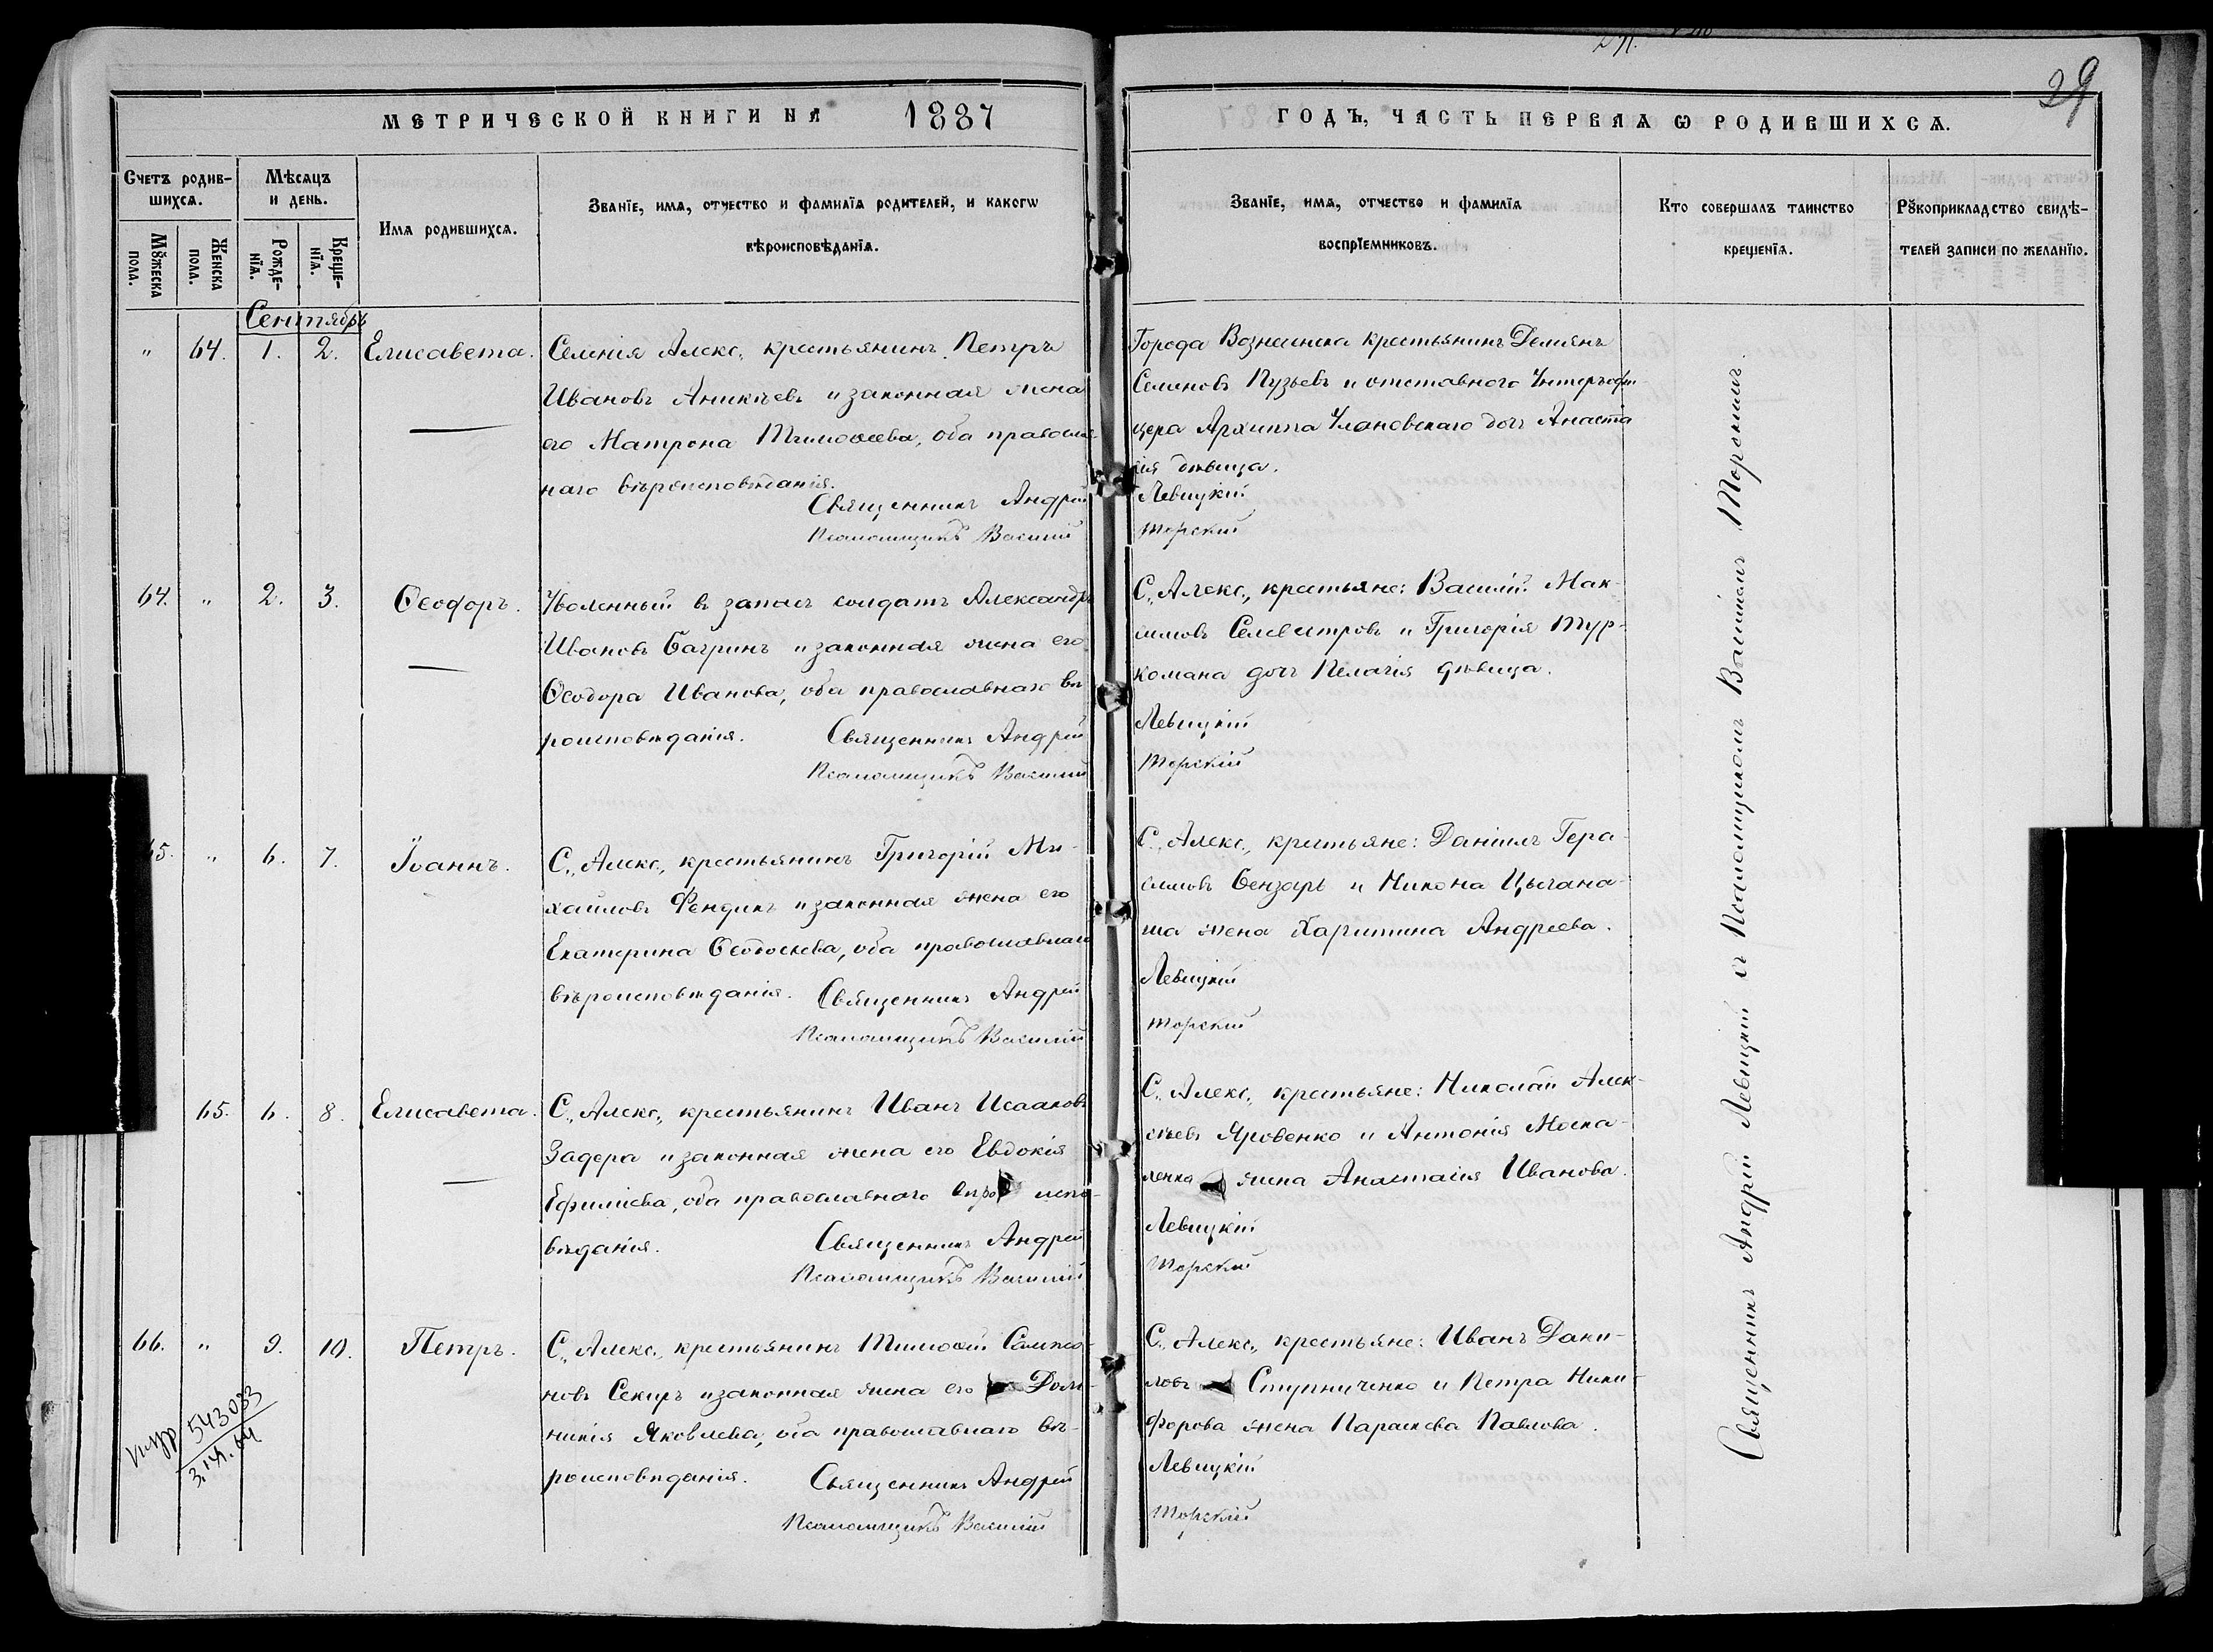 29
МЕТРИЧЕСКОЙ КНИГИ НА 1887
ГОДЪ, ЧАСТЬ ПЕРВАЯ Ѡ РОДИВШИХСѦ.
Счетъ родив-
шихсѧ.
Мѣсяцъ
и день.
Имѧ родившихсѧ.
Званїе, имѧ, отчество и фамилїѧ родителей, и какогѡ
вѣроисповѣданїѧ.
Мꙋжеска пола.
Женска пола.
Рожде-
нїѧ.
Креще-
нїѧ.
Званїе, имѧ, отчество и фамилїѧ
воспрїемниковъ.
Кто совершалъ таинство
крещенїѧ.
Рꙋкоприкладство свидѣ-
телей записи по желанїю.
Сентябрь
" 64. 1. 2. Елисавета.
Селенія Алекс., крестьянинъ Петръ
Ивановъ Аникѣевъ и законная жена
его Матрона Тимоѳеева, оба православ-
наго вѣроисповѣданія.
Священникъ Андрей
Псаломщикъ Василій
Города Вознесенска крестьянинъ Деміянъ
Семеновъ Пузьевъ и отставного Унтеръофи-
цера Архиппа Улановскаго дочь Анаста
сія дѣвица.
Левицкій
Торскій
64. " 2. 3. Ѳеодоръ.
Уволенный въ запасъ солдатъ Александръ
Ивановъ Багринъ и законная жена его
Ѳеодора Иванова, оба православнаго вѣ-
роисповѣданія. Священникъ Андрей
Псаломщикъ Василій
С., Алекс., крестьяне: Василій Мак-
симовъ Селевестровъ и Григорія Тур-
комана дочь Пелагія дѣвица.
Левицкій
Торскій
65. " 6. 7. Іоаннъ.
С., Алекс., крестьянинъ Григорій Ми-
хайловъ Фендикъ и законная жена его
Екатерина Ѳеодосіева, оба православнаго
вѣроисповѣданія. Священникъ Андрей
Псаломщикъ Василій
С., Алекс., крестьяне: Даніилъ Гера-
симовъ Бензарь и Никона Цыгана-
ша жена Харитина Андреева.
Левицкій
Торскій
65. 6. 8. Елисавета.
С., Алекс., крестьянинъ Иванъ Исааковъ
Задера и законная жена его Евдокія
Ефиміева, оба православнаго вѣро испо-
вѣданія. Священникъ Андрей
Псаломщикъ Василій
С., Алекс., крестьяне: Николай Алек-
сѣевъ Яровенко и Антонія Моска-
ленка жена Анастасія Иванова.
Левицкій
Торскій
66. " 9. 10. Петръ.
С., Алекс., крестьянинъ Тимоѳей Сампсо-
новъ Секиръ и законная жена его Доми-
никія Яковлева, оба православнаго вѣ-
роисповѣданія. Священникъ Андрей
Псаломщикъ Василій
С., Алекс., крестьяне: Иванъ Дани-
ловъ Ступниченко и Петра Ники-
форова жена Параскева Павлова.
Левицкій
Торскій
543033
Священникъ Андрей Левицкій съ Псаломщикомъ Василіемъ Торскимъ.